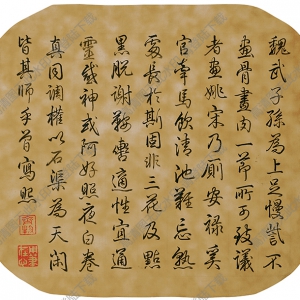 魏武子孫為上足慢訾不
畫骨畫肉一節所可致議
者畫姚宋乃厮安祿奚
官牽馬飲清池難忘
處長於斯固非三花及點
黑脫謝鞍轡適性宜通
靈或神或阿好照夜白卷
真同調權以石渠為天閑
皆其師手曾寫照